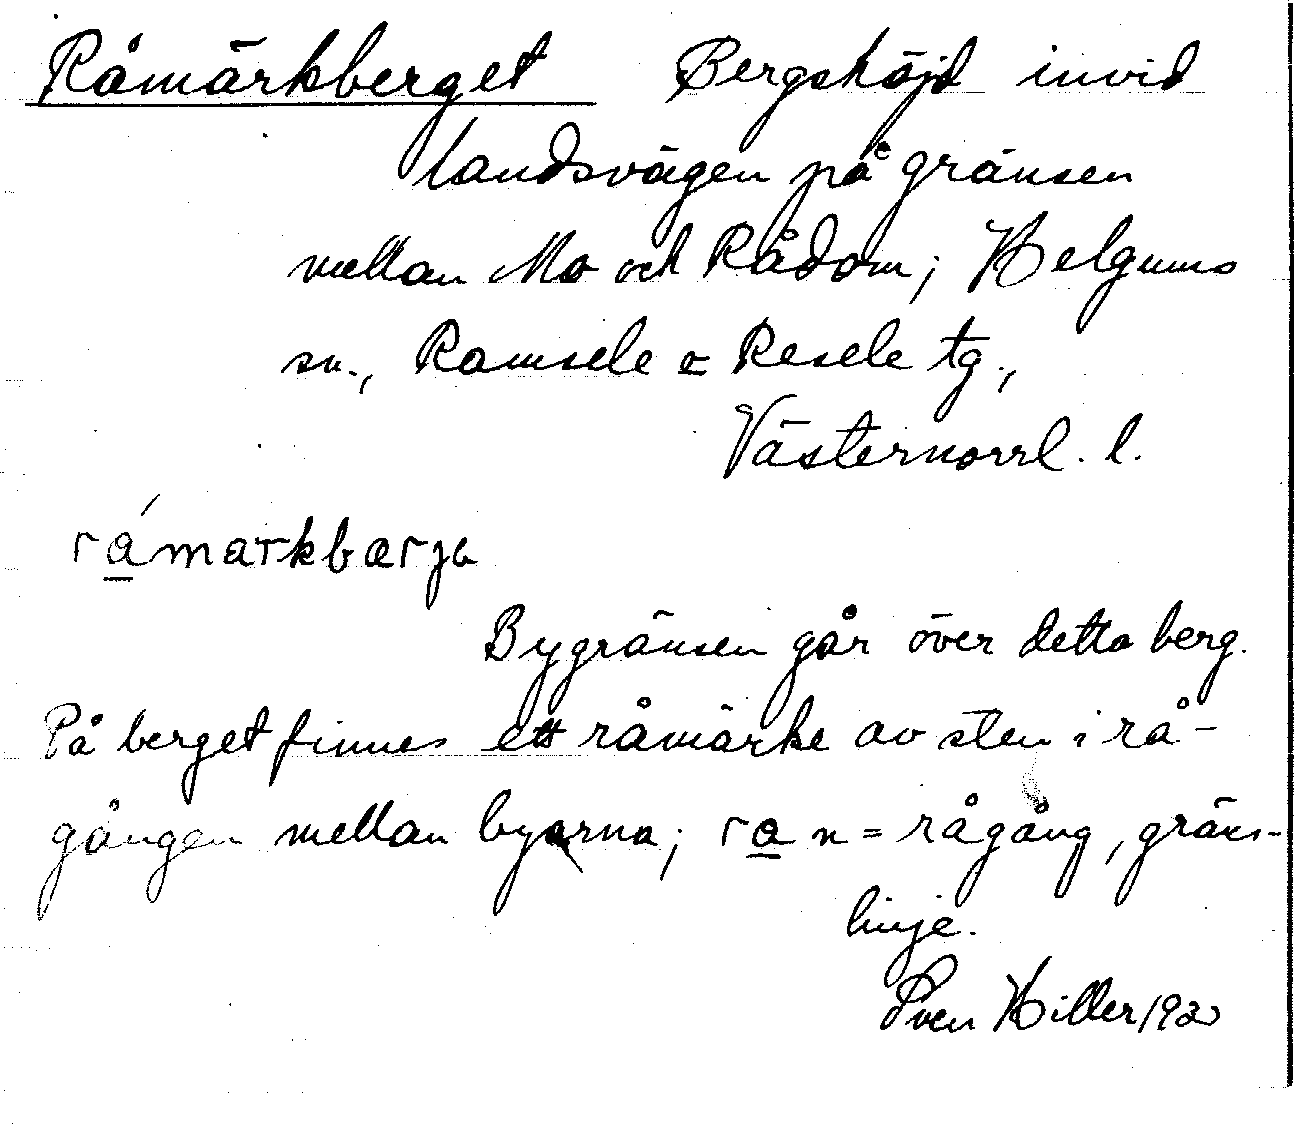 Råmärkberget Bergshöjd invid
landsvägen på gränsen
mellan Mo och Rådom; Helgums
sn., Ramsele o Resele tg.,
Västernorrl. l.
råmarkbærja
Bygränsen går över detta berg.
På berget finnes ett råmärke av sten i rå-
gången mellan byarna; ra n = rågång, gräns-
linje.
Sven Hiller 1920